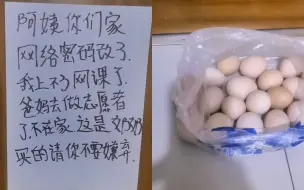 阿姨你们家
网络密码改了.
我上不了网课了.
爸妈去做志愿者
了不在家这是奶奶
买的请你不要嫌弃.